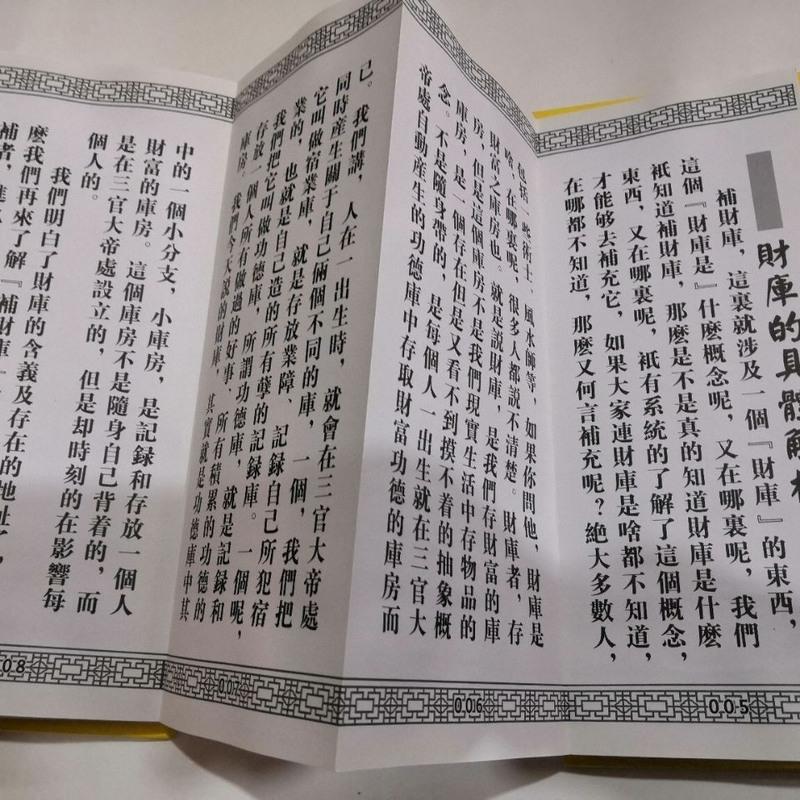 財庫的具體解
補財庫，這裏就涉及一個『財庫』的東西，
這個『財庫是』什麽概念呢，又在哪裏呢，我們
衹知道補財庫，那麽是不是真的知道財庫是什麽
東西，又在哪裏呢，衹有系統的了解了這個概念，
才能够去補充它，如果大家連財庫是啥都不知道，
在哪都不知道，那麽又何言補充呢？絶大多數人，
005
包括一些術士、風水師等，如果你問他，財庫是
啥，在哪裏呢，很多人都説不清楚。財庫者，存
財富之庫房也。就是説財庫，是我們存財富的庫
房，但是這個庫房不是我們現實生活中存物品的
庫房，是一個存在但是又看不到摸不着的抽象概
念。不是隨身帶的，是每個人一出生就在三官大
帝處自動産生的功德庫中存取財富功德的庫房而
006
己。我們講，人在一出生時，就會在三官大帝處
同時産生關于自己倆個不同的庫，一個，我們把
它叫做宿業庫，就是存放業障、記録自己所犯宿
業的，也就是自己造的所有孽的記録庫。一個呢，
我們把它叫做功德庫，所謂功德庫，就是記録和
存放一個人所有做過的好事，所有積累的功德的
庫房。我們今天説的財庫，其實就是功德庫中其
007
中的一個小分支，小庫房，是記録和存放一個人
財富的庫房。這個庫房不是隨身自己背着的，而
是在三官大帝處設立的，但是却時刻的在影響每
個人的。
我們明白了財庫的含義及存在的地址了，
麽我們再來了解『補財庫
補者，
008